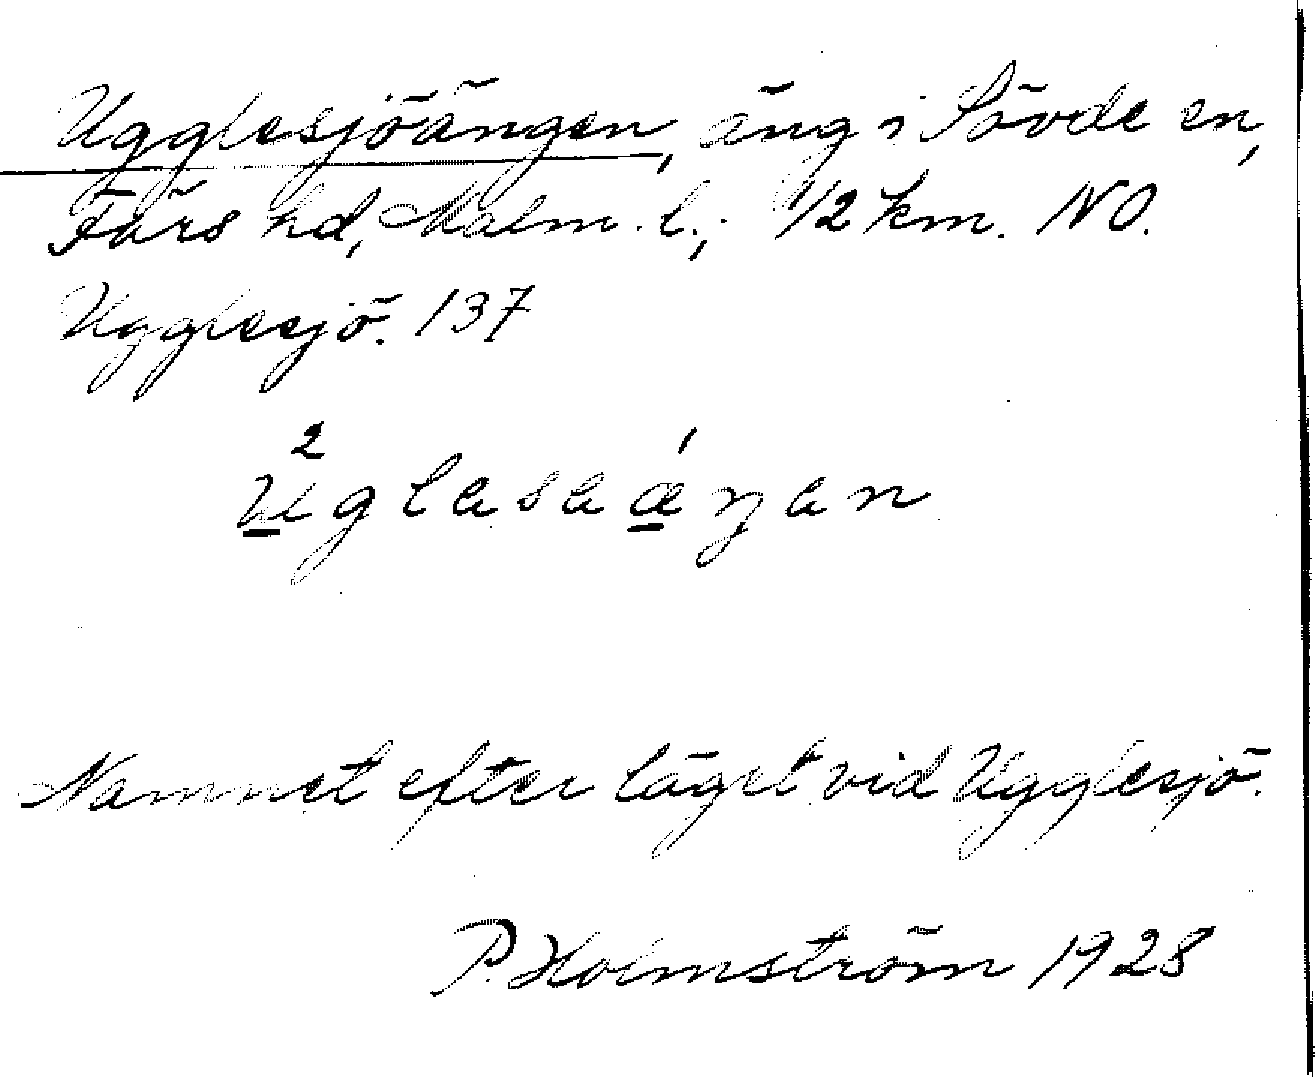 Ugglesjöängen, äng i Sövde sn,
Färs hd, Malm. l.; 1/2 km. NO.
Ugglesjö. 137
u²glasaæ´ŋan
Namnet efter läget vid Ugglesjö.
P. Holmström 1928